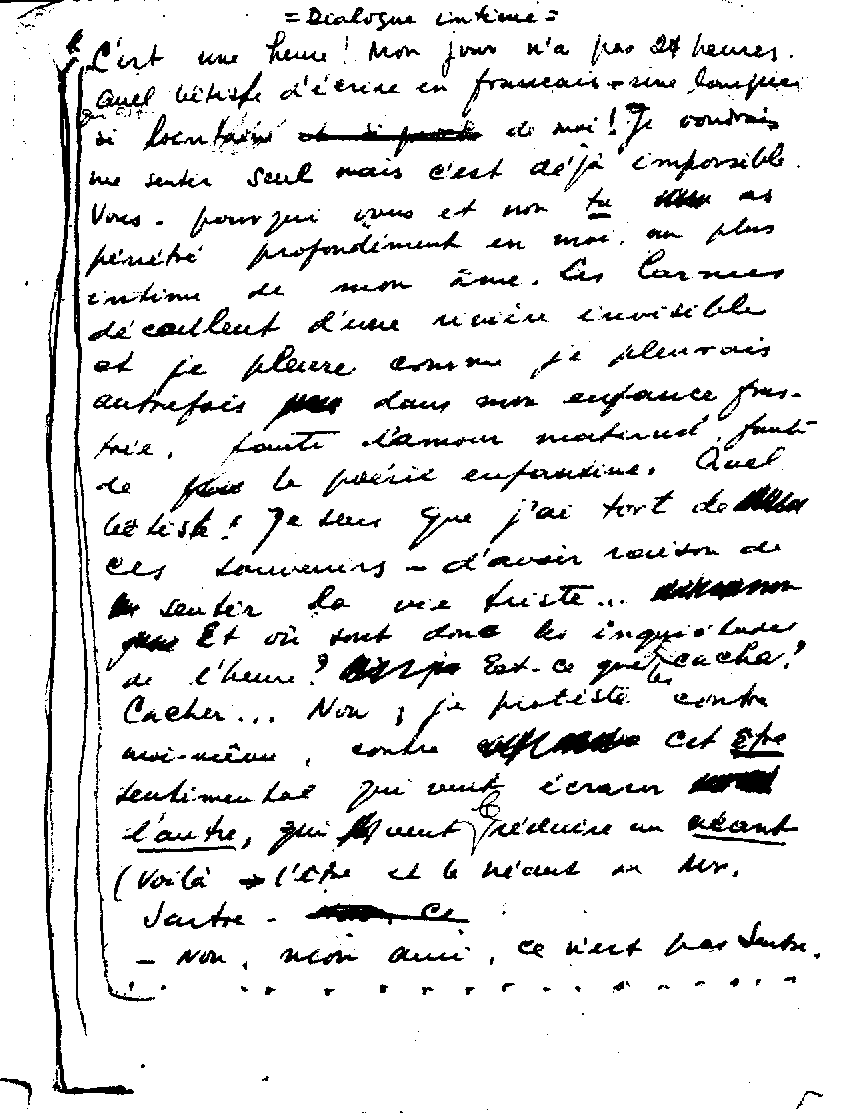 = Dialogue intime =
C'est une heure ! Mon jour n'a pas 24 heures.
Quel bêtise d'écrire en francais - une langue
si de moi ! Je voudrais
me sentir seul mais c'est déjà impossible.
Vous - pourqui vous et non tu as
pénétré profondément en moi, au plus
intime de mon âme. Les larmes
découllent d'une rivière invisible
et je pleure comme je pleurais
autrefois dans mon enfance frus-
trée, faute d'amour maternel, faute
de la poésie enfantine. Quel
bêtise ! Je sens que j'ai tort de
ces souvenirs - d'avoir raison de
sentir la vie triste...
Et où sont donc les inquiétudes
de l'heure ? Est-ce que les cacher ?
Cacher... Non, je proteste contre
moi-même, contre cet être
sentimental qui veut écraser
l'autre, qui veut le réduire au néant
(Voilà l'être et le néant Mr.
Sartre -
- Non, mon ami, ce n'est pas Sartre.